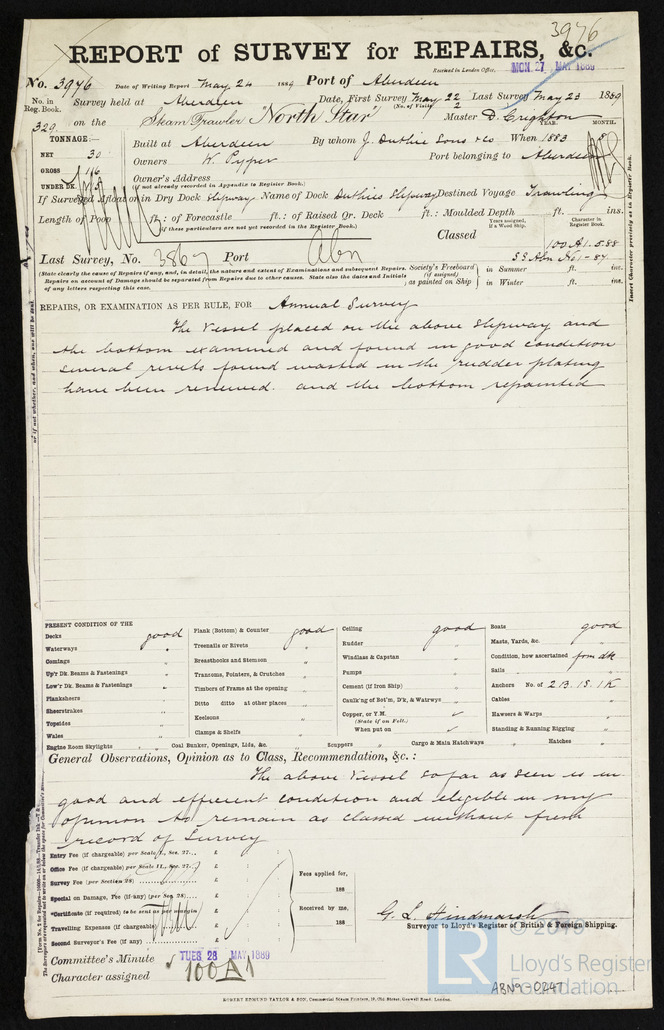 3976
REPORT of SURVEY for REPAIRS, &c.
Received in London Office, MON. 27 MAY 1889
No. 3976 Date of Writing Report May 24 1889 Port of Aberdeen
No. in Reg. Book. Survey held at Aberdeen Date, First Survey May 22 Last Survey May 23 1889
(No. of Visits 2)
329 on the Steam Trawler "North Star" Master D. Crighton
TONNAGE: YEAR. MONTH.
NET 30 Built at Aberdeen By whom J. Duthie Sons & Co When 1883 8
GROSS 116 Owners W. Pyper Port belonging to Aberdeen
UNDER DK. Owner's Address
(if not already recorded in Appendix to Register Book.)
If Surveyed Afloat or in Dry Dock Slipway Name of Dock Duthies Slipway Destined Voyage Trawling
Length of Poop ft.: of Forecastle ft.: of Raised Qr. Deck ft.: Moulded Depth ft. ins.
(if these particulars are not yet recorded in the Register Book.)
Classed
Years assigned, if a Wood Ship.
Character in Register Book.
100A1. 5.88
SS Abn No1-87
Last Survey, No. 3867 Port Abn
(State clearly the cause of Repairs if any, and, in detail, the nature and extent of Examinations and subsequent Repairs.
Repairs on account of Damage should be separated from Repairs due to other causes. State also the dates and Initials
of any letters respecting this case.)
Society's Freeboard (if assigned) as painted on Ship
in Summer ft. ins.
in Winter ft. ins.
Insert Character precisely as in Register Book.
REPAIRS, OR EXAMINATION AS PER RULE, FOR Annual Survey
The Vessel placed on the above Slipway and
the bottom examined and found in good condition
several rivets found wasted in the rudder plating
have been renewed. and the bottom repainted
PRESENT CONDITION OF THE
Decks good
Waterways "
Comings "
Up'r Dk. Beams & Fastenings
Low'r Dk. Beams & Fastenings "
Planksheers
Sheerstrakes "
Topsides "
Wales "
Engine Room Skylights "
Plank (Bottom) & Counter good
Treenails or Rivets "
Breasthooks and Stemson "
Transoms, Pointers, & Crutches "
Timbers of Frame at the opening
Ditto ditto at other places "
Keelsons "
Clamps & Shelfs "
Coal Bunker, Openings, Lids, &c. "
Ceiling good
Rudder "
Windlass & Capstan "
Pumps "
Cement (if Iron Ship) "
Caulk'ng of Bot'm, D'k, & Watrwys
Copper, or Y.M. (State if on Felt.)
When put on
Scuppers " Cargo & Main Hatchways "
Boats good
Masts, Yards, &c. "
Condition, how ascertained from dk
Sails "
Anchors No. of 2B. 1S. 1K
Cables "
Hawsers & Warps "
Standing & Running Rigging "
Hatches "
General Observations, Opinion as to Class, Recommendation, &c.:
The above Vessel so far as seen is in
good and efficient condition and eligible in my
opinion to remain as classed without fresh
record of Survey
Entry Fee (if chargeable) per Scale I., Sec. 27... £ : :
Office Fee (if chargeable) per Scale II., Sec. 27... £ : :
Survey Fee (per Section 28) £ : :
Special on Damage, Fee (if any) (per Sec. 28) £ : :
*Certificate (if required) to be sent as per margin £ : :
Travelling Expenses (if chargeable) £ : :
Second Surveyor's Fee (if any) £ : :
Fees applied for, 188
Received by me, 188
G. L. Hindmarsh
Surveyor to Lloyd's Register of British & Foreign Shipping.
Committee's Minute TUES. 28 MAY 1889
Character assigned 100A1
© 2019
LR Lloyd's Register Foundation
ABN9-0247
ROBERT EDMUND TAYLOR & SON, Commercial Steam Printers, 19, Old Street, Goswell Road, London.